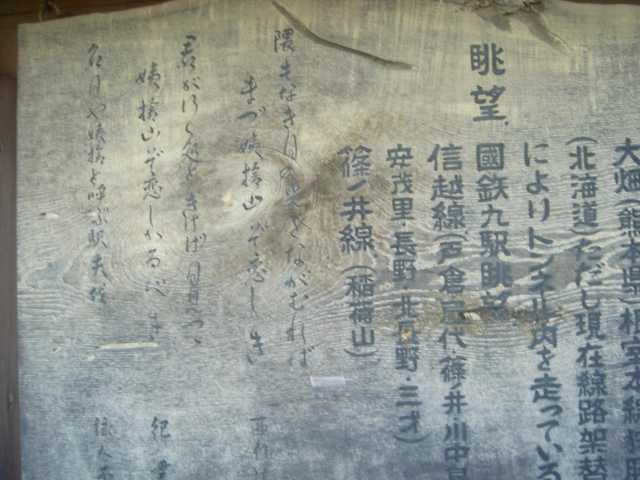 大畑(熊本県)根室本線
(北海道)ただし現在線路架替
によりトンネル内を走っている
眺望
國鉄九駅眺望
信越線(戸倉・屋代・篠ノ井・川中島
安茂里・長野・北長野・三才)
篠ノ井線(稲荷山)
隈もなき月の光をながむれば
まづ姨捨山ぞ恋しき
君が行く処ときけば月見つつ
姨捨山ぞ恋しかるべき
名月や姨捨と呼ぶ駅
紀貫